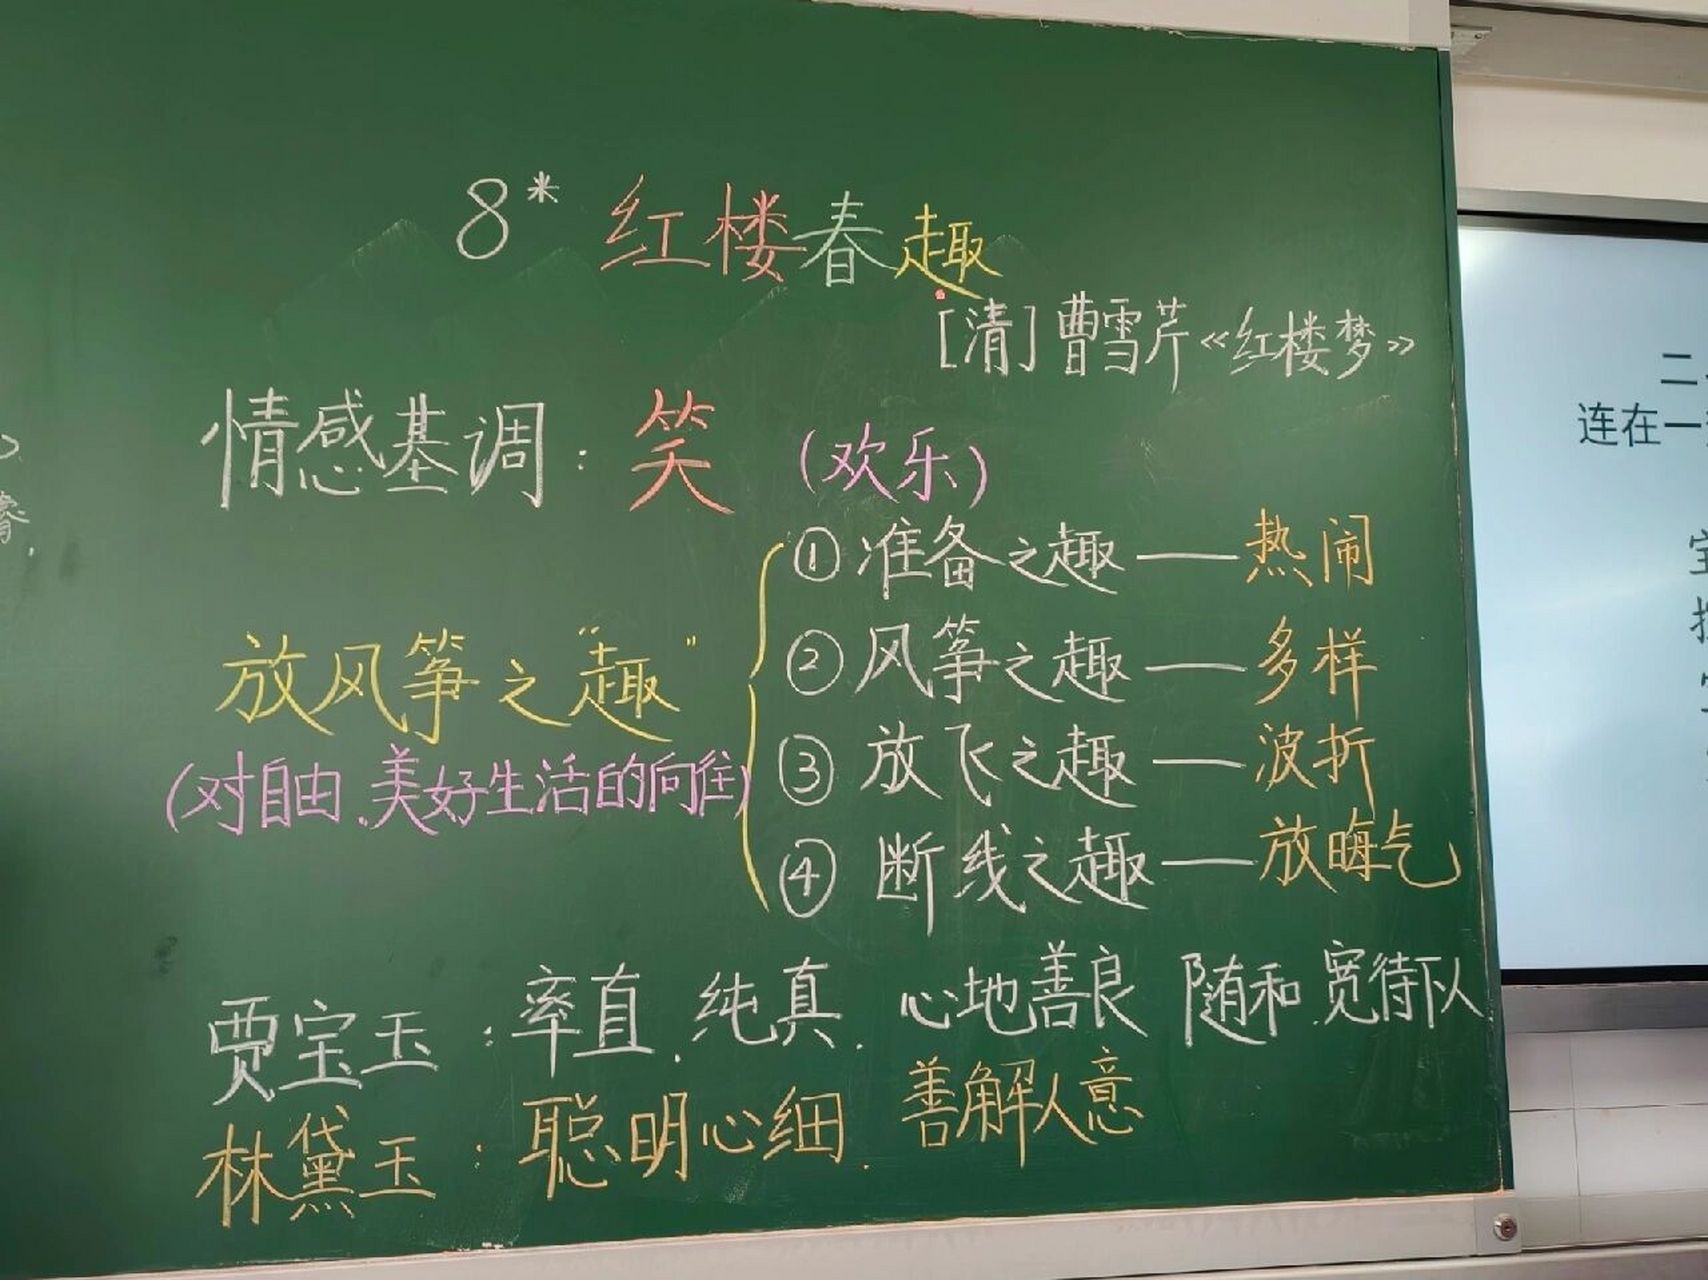 8* 红楼春趣
[清] 曹雪芹《红楼梦》
情感基调：笑（欢乐）
放风筝之“趣”
（对自由、美好生活的向往）
① 准备之趣——热闹
② 风筝之趣——多样
③ 放飞之趣——波折
④ 断线之趣——放晦气
贾宝玉：率直、纯真、心地善良 随和、宽待下人
林黛玉：聪明心细、善解人意
二
连在一